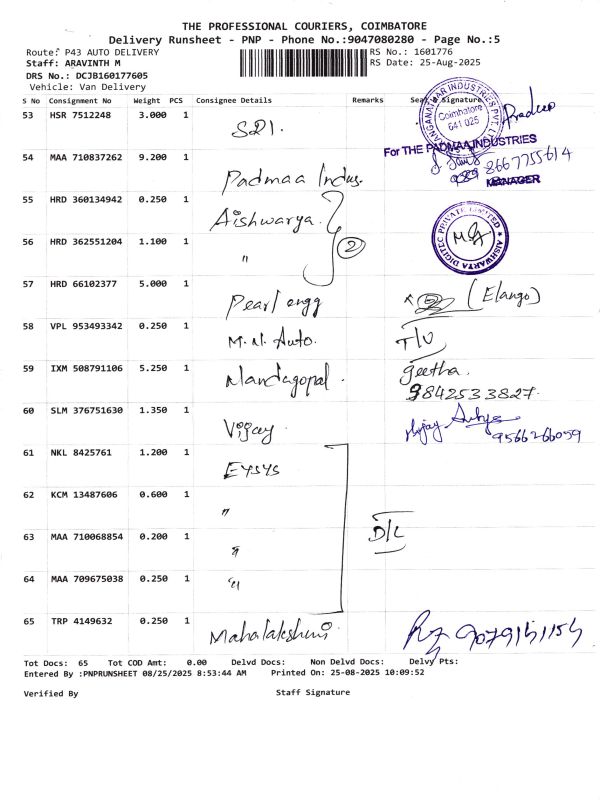 THE PROFESSIONAL COURIERS, COIMBATORE
Delivery Runsheet - PNP - Phone No.:9047080280 - Page No.:5
Route: P43 AUTO DELIVERY RS No.: 1601776
Staff: ARAVINTH M RS Date: 25-Aug-2025
DRS No.: DCJB160177605
Vehicle: Van Delivery
S No Consignment No Weight PCS Consignee Details Remarks Seal & Signature
53 HSR 7512248 3.000 1 Pradeep
Coimbatore 641 025
For THE PADMAA INDUSTRIES
54 MAA 710837262 9.200 1 Padmaa Indus. 8667755614
MANAGER
55 HRD 360134942 0.250 1 Aishwarya.
AISHWARYA DIGITEC PRIVATE LIMITED
56 HRD 362551204 1.100 1 " 2
57 HRD 66102377 5.000 1 Pearl engg (Elango)
58 VPL 953493342 0.250 1 M.N. Auto.
59 IXM 508791106 5.250 1 Nandagopal. geetha.
9842533827.
60 SLM 376751630 1.350 1 Vijay. 9566266059
61 NKL 8425761 1.200 1 Eysys
62 KCM 13487606 0.600 1 "
63 MAA 710068854 0.200 1 " D/L
64 MAA 709675038 0.250 1 "
65 TRP 4149632 0.250 1 Mahalakshmi
Tot Docs: 65 Tot COD Amt: 0.00 Delvd Docs: Non Delvd Docs: Delvy Pts:
Entered By :PNPRUNSHEET 08/25/2025 8:53:44 AM Printed On: 25-08-2025 10:09:52
Verified By Staff Signature